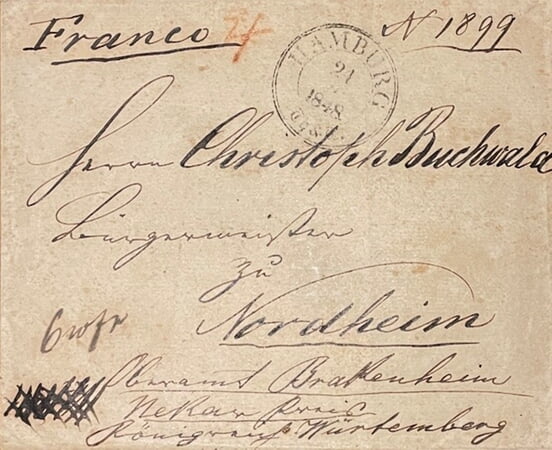 Franco
N 1899
HAMBURG
21
1848
Herrn Christoph Buchwald
Bürgermeister
zu
Nordheim
Oberamt Brakenheim
Nekar Kreis
Königreich Würtemberg